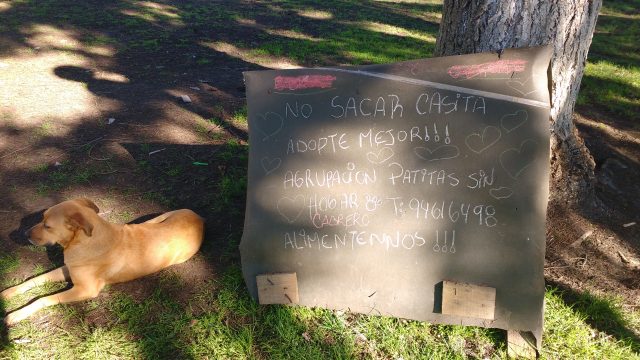 NO SACAR CASITA
ADOPTE MEJOR!!!
AGRUPACION PATITAS SIN
HOGAR T: 94616498
CABRERO
ALIMENTENNOS !!!